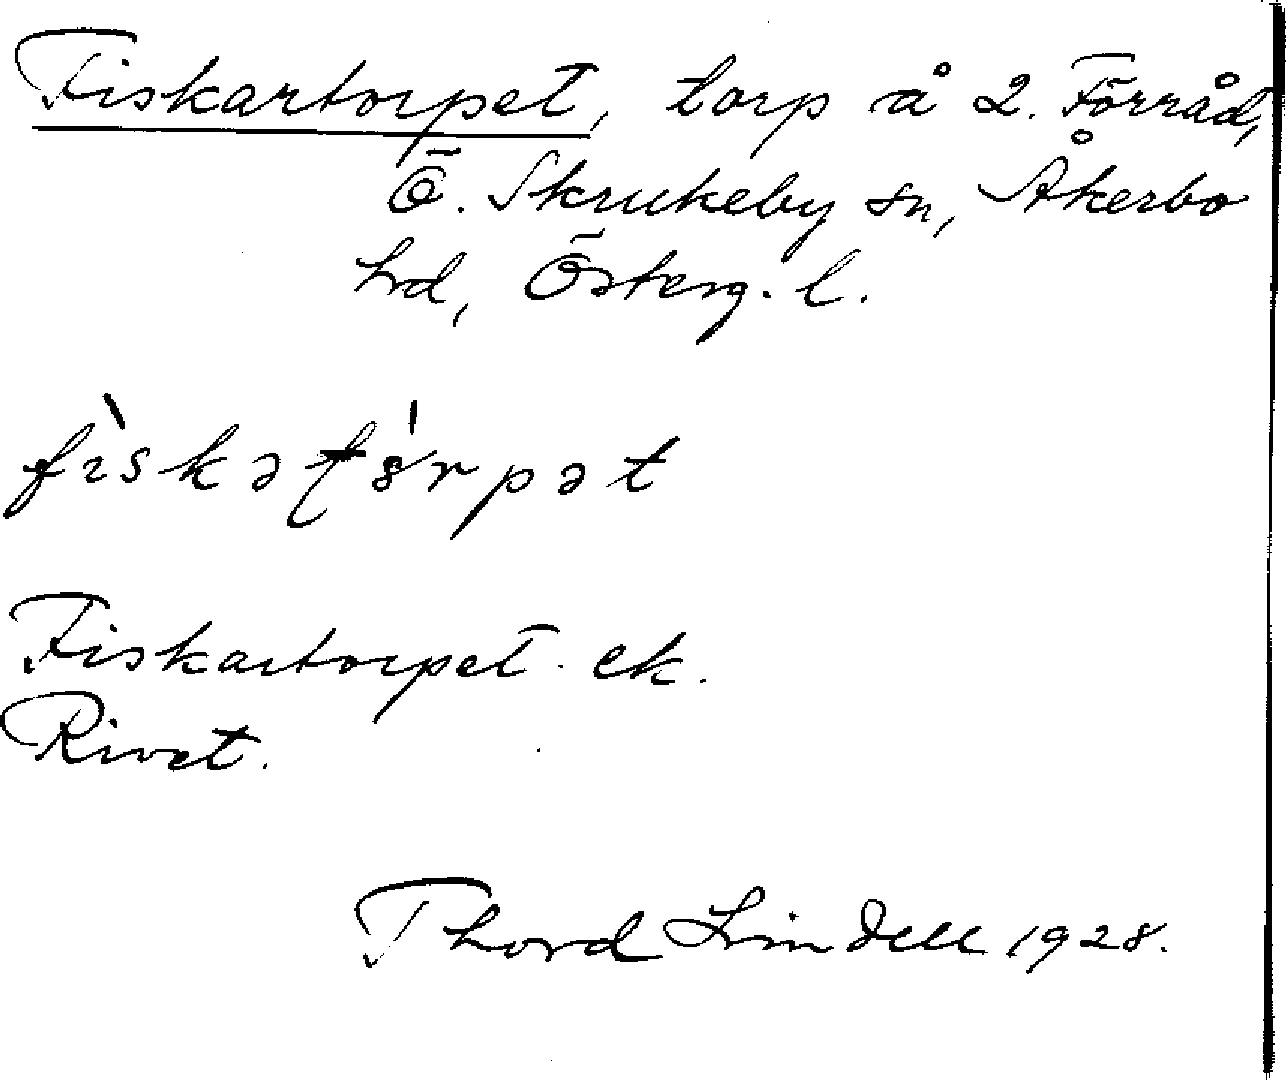 Fiskartorpet, torp å 2. Förråd,
Ö. Skrukeby sn, Åkerbo
hd, Österg. l.
fìskəʈa̍rpət
Fiskartorpet. ek.
Rivet.
Thord Lindell 1928.